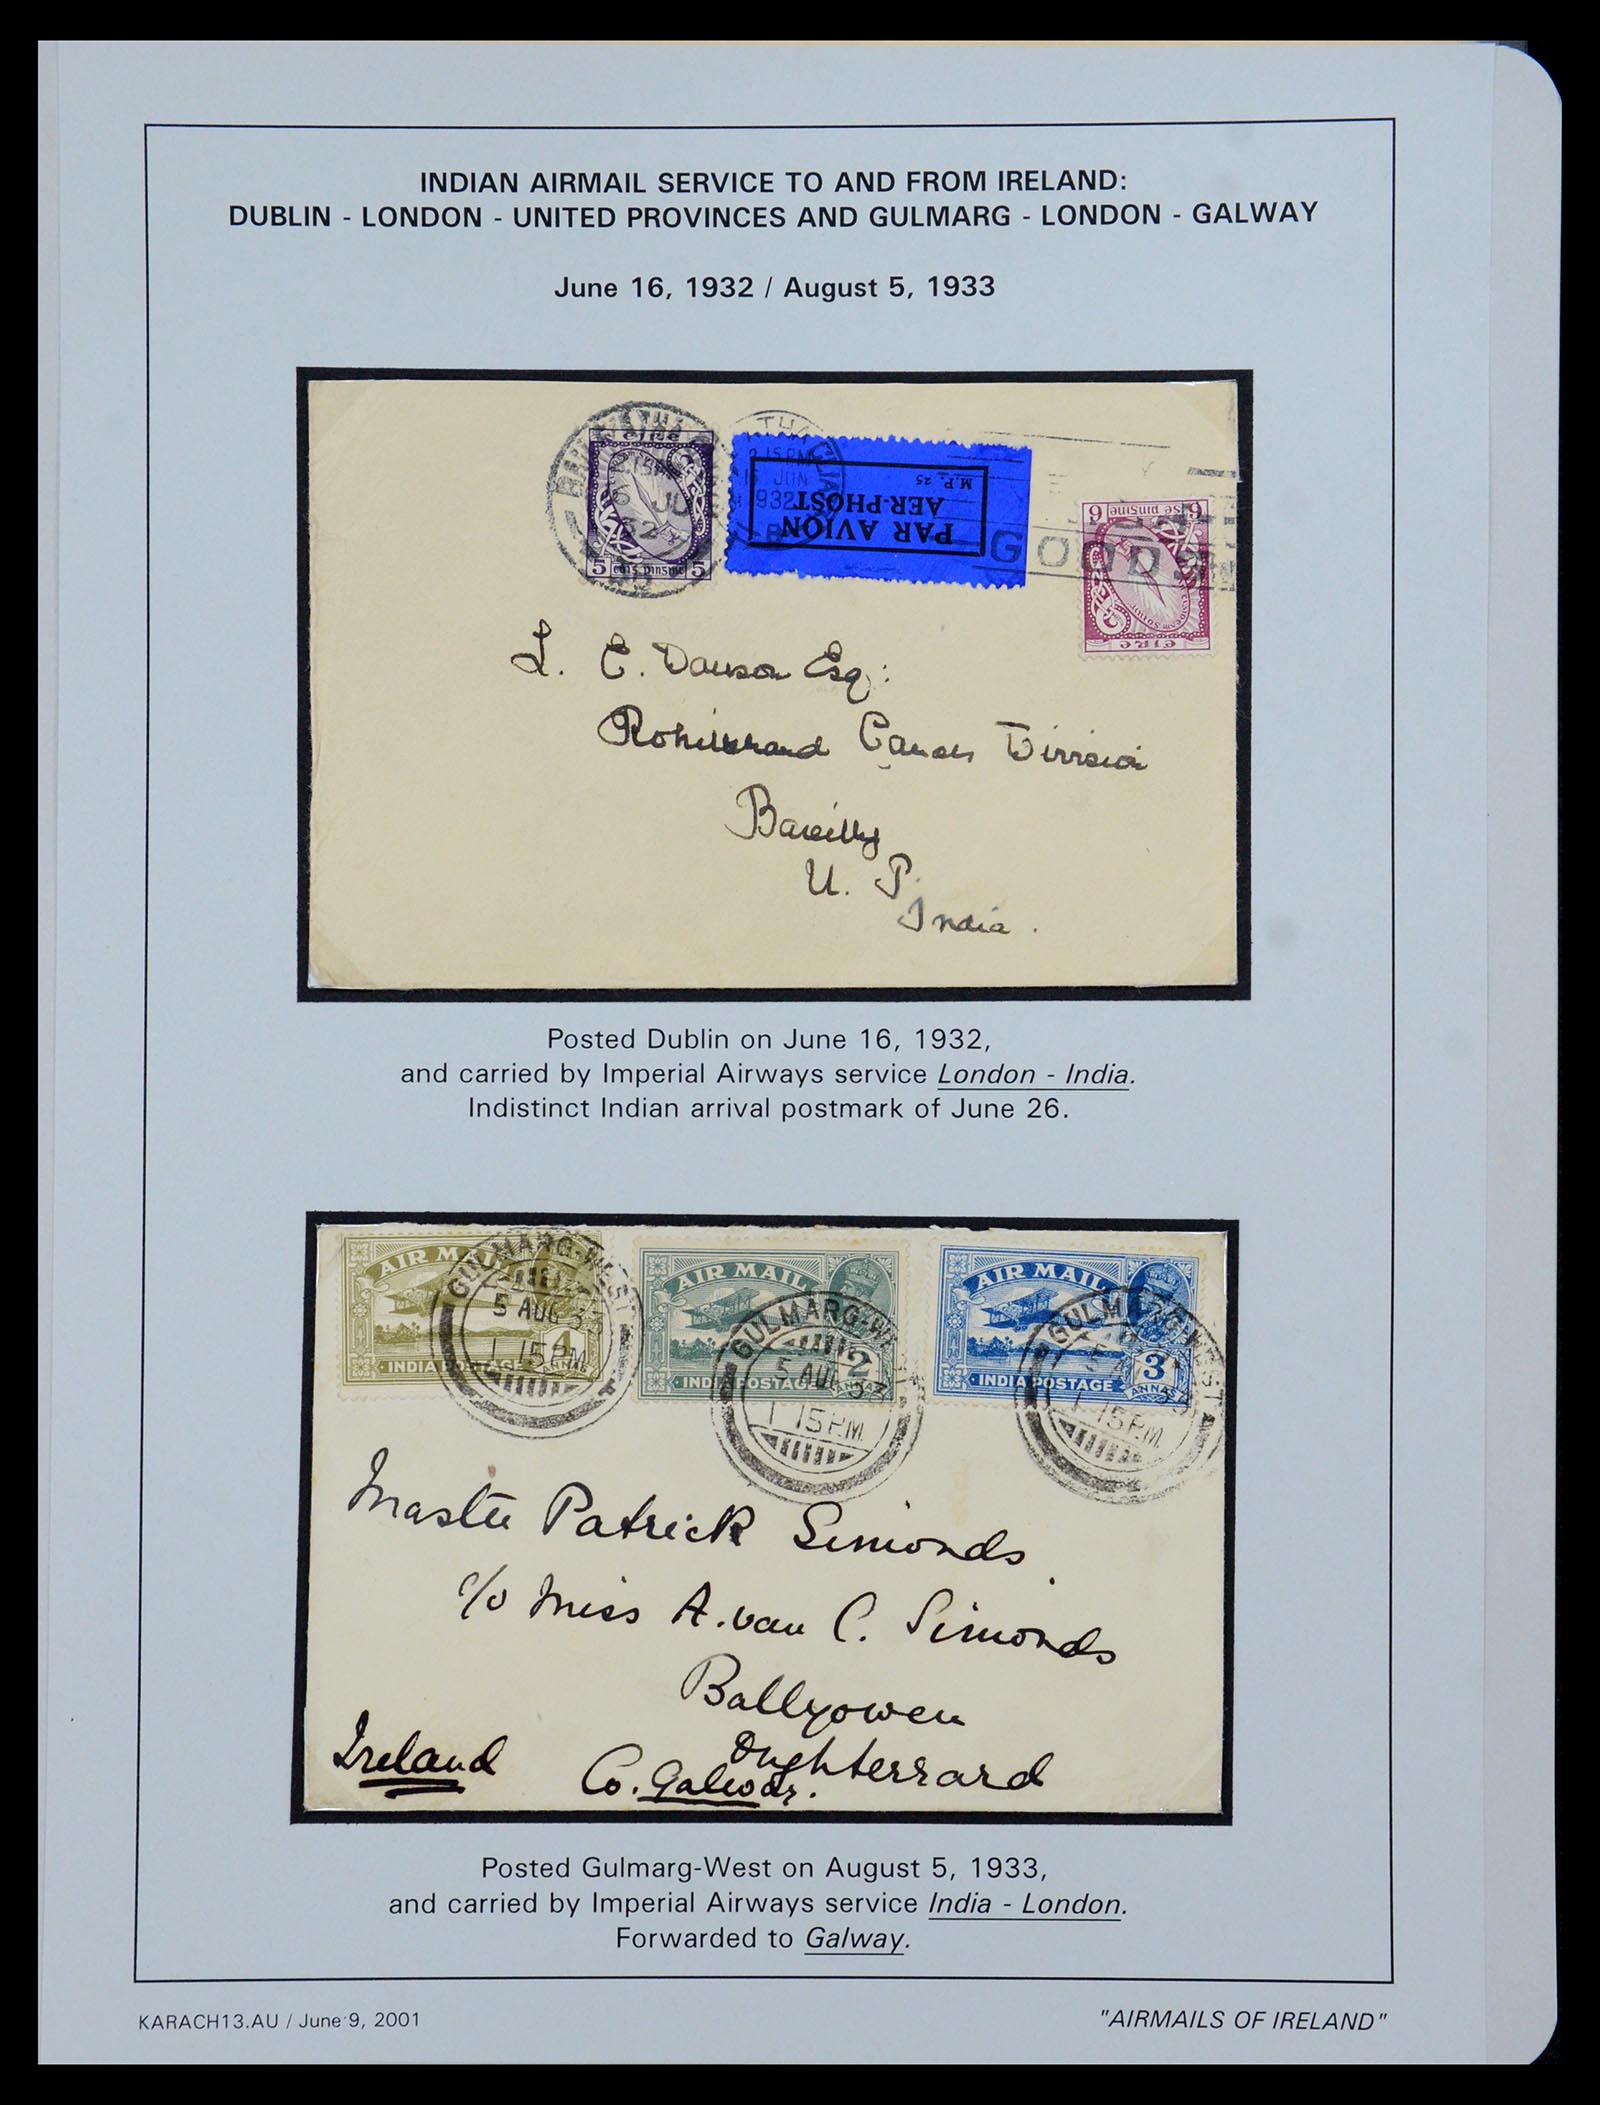 INDIAN AIRMAIL SERVICE TO AND FROM IRELAND:
DUBLIN - LONDON - UNITED PROVINCES AND GULMARG - LONDON - GALWAY
June 16, 1932 / August 5, 1933
éire
5 cúig pinsine 5
2 15PM
JUN
1932
M.P. 25
AER-PHOST
PAR AVION
6 sé pinsine 6
éire
GOODS
L. E. Dawson Esq:
Rohilkhand Canals Division
Bareilly
U. P.
India.
Posted Dublin on June 16, 1932,
and carried by Imperial Airways service London - India.
Indistinct Indian arrival postmark of June 26.
AIR MAIL
INDIA POSTAGE 4 ANNAS
GULMARG-WEST
5 AUG 33
1 15 P.M.
AIR MAIL
INDIA POSTAGE 2 ANNAS
GULMARG-WEST
5 AUG 33
1 15 P.M.
AIR MAIL
INDIA POSTAGE 3 ANNAS
GULMARG-WEST
5 AUG 33
1 15 P.M.
Master Patrick Simonds
c/o Miss A. van C. Simonds
Ballyowen
Oughterrard
Co. Galway.
Ireland
Posted Gulmarg-West on August 5, 1933,
and carried by Imperial Airways service India - London.
Forwarded to Galway.
KARACH13.AU / June 9, 2001
"AIRMAILS OF IRELAND"